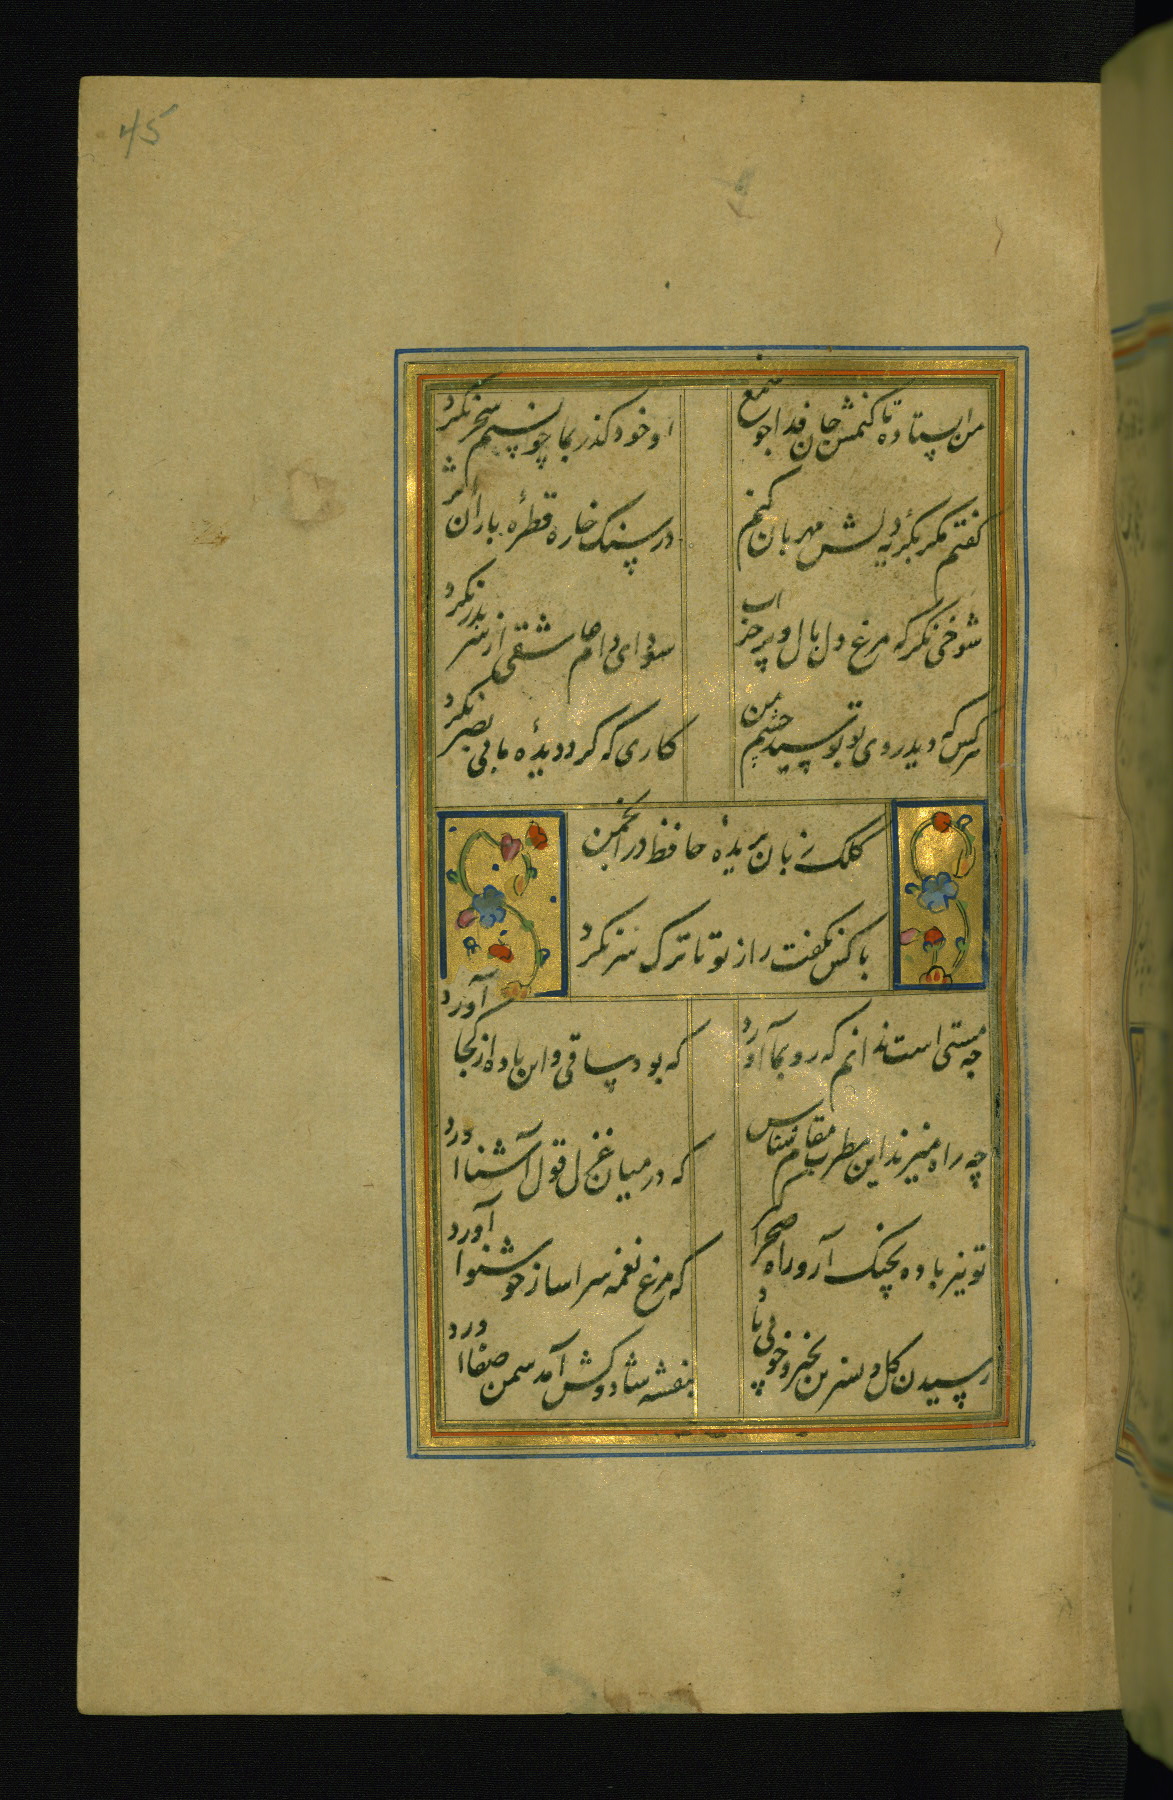 45
من ایستاده تا کنمش جان فدا جو شمع
او خود گذر بما چو نسیم سحر نکرد
کفتم مکر بکریه دلش مهربان کنم
در سنک خاره قطرهٔ باران اثر نکرد
شوخی نکر که مرغ دل بال و پر خراب
سودای دام عاشقی از سر بدر نکرد
هر کس که دید روی تو بوسید چشم من
کاری که کرد دیدهٔ ما بی بصر نکرد
کلک زبان بریدهٔ حافظ در انجمن
با کس نکفت راز تو تا ترک سر نکرد
چه مستی است ندانم که رو بما آورد
که بود ساقی و این باده از کجا آورد
چه راه میزند این مطرب مقام شناس
که در میان غزل قول آشنا اورد
تو نیز باده بچنک آر و راه صحرا کیر
که مرغ نغمه سرا ساز خوشنوا آورد
رسیدن کل و نسرین بخیر و خوبی باد
بنفشه شاد و کش آمد سمن صفا اورد